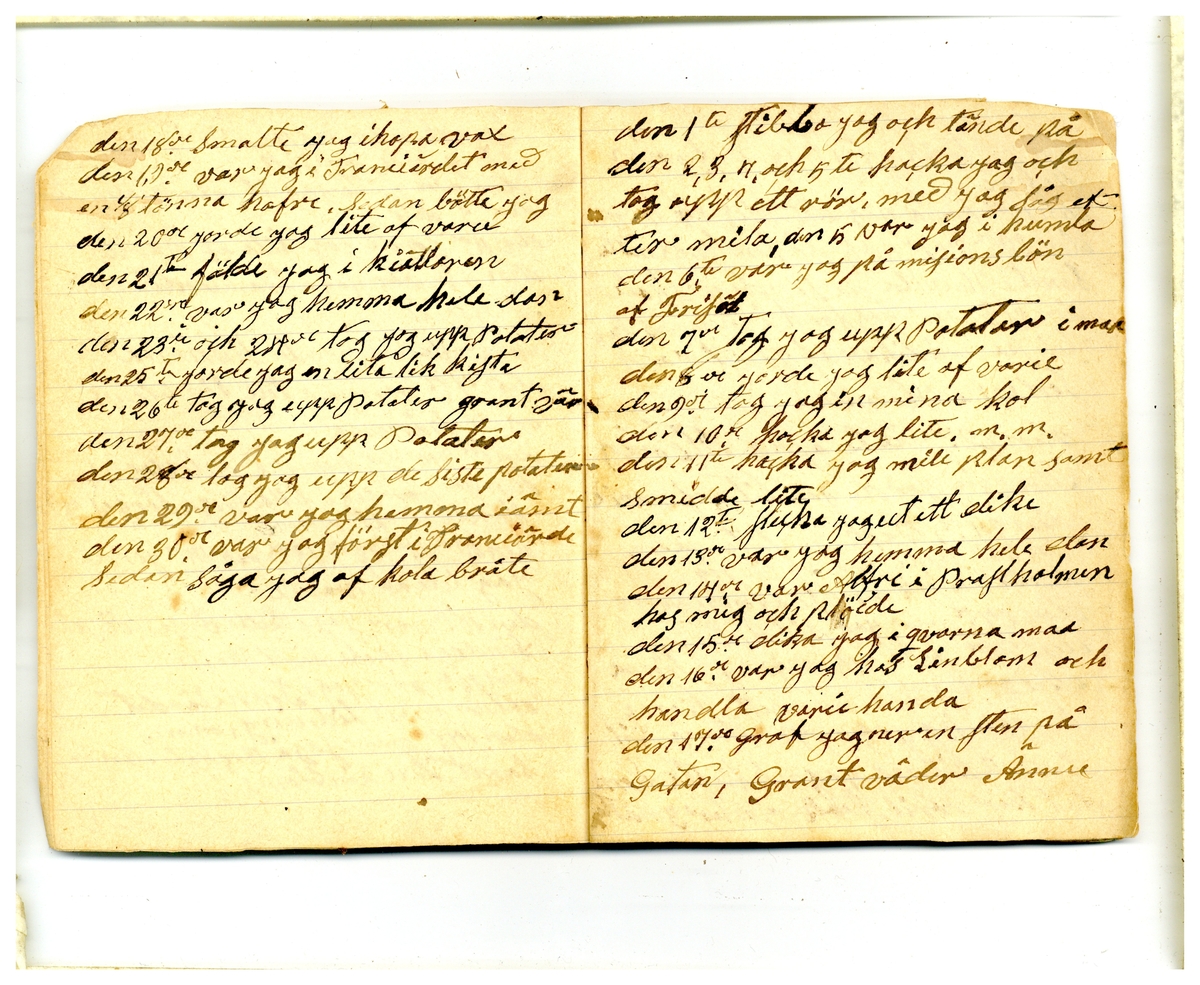 den 18de Smalte yag ihopa vax
den 19de var yag i Franciärdet med
en ½ tönna hafre, Sedan bötte yag
den 20de yorde yag lite af varie
den 21te földe yag i kiälloren
den 22re var yag hemma hele dan
den 23i och 24de tog yag upp Potater
den 25te yorde yag en lita lik kista
den 26te tog yag upp Potater grant vär
den 27de tog yag upp Potater
den 28de tog yag upp de siste potaterne
den 29de var yag hemma iämt
den 30de var yag först i Franciärde
Sedan såga yag af kola bräte
den 1te stibba yag och tände på
den 2, 3, 4, och 5te hacka yag och
tog upp ett rör, med yag såg ef
ter mila, den 5 var yag i humla
den 6te var yag på misions bön
af Frisöt
den 7de tog yag upp Potater i maa
den 8de yorde yag lite af varie
den 9de tog yag in mina kol
den 10de hacka yag lite. m. m.
den 11te hacka yag mile plan samt
smidde lite
den 12te yag ett dike
den 13de var yag hemma hele dan
den 14de var Alfri i Prastholmen
hos mig och plöide
den 15de dika yag i qvarna maa
den 16de var yag hos Linblom och
handla varie handa
den 17de Graf yag ner en sten på
Gatan, Grant väder Ännu